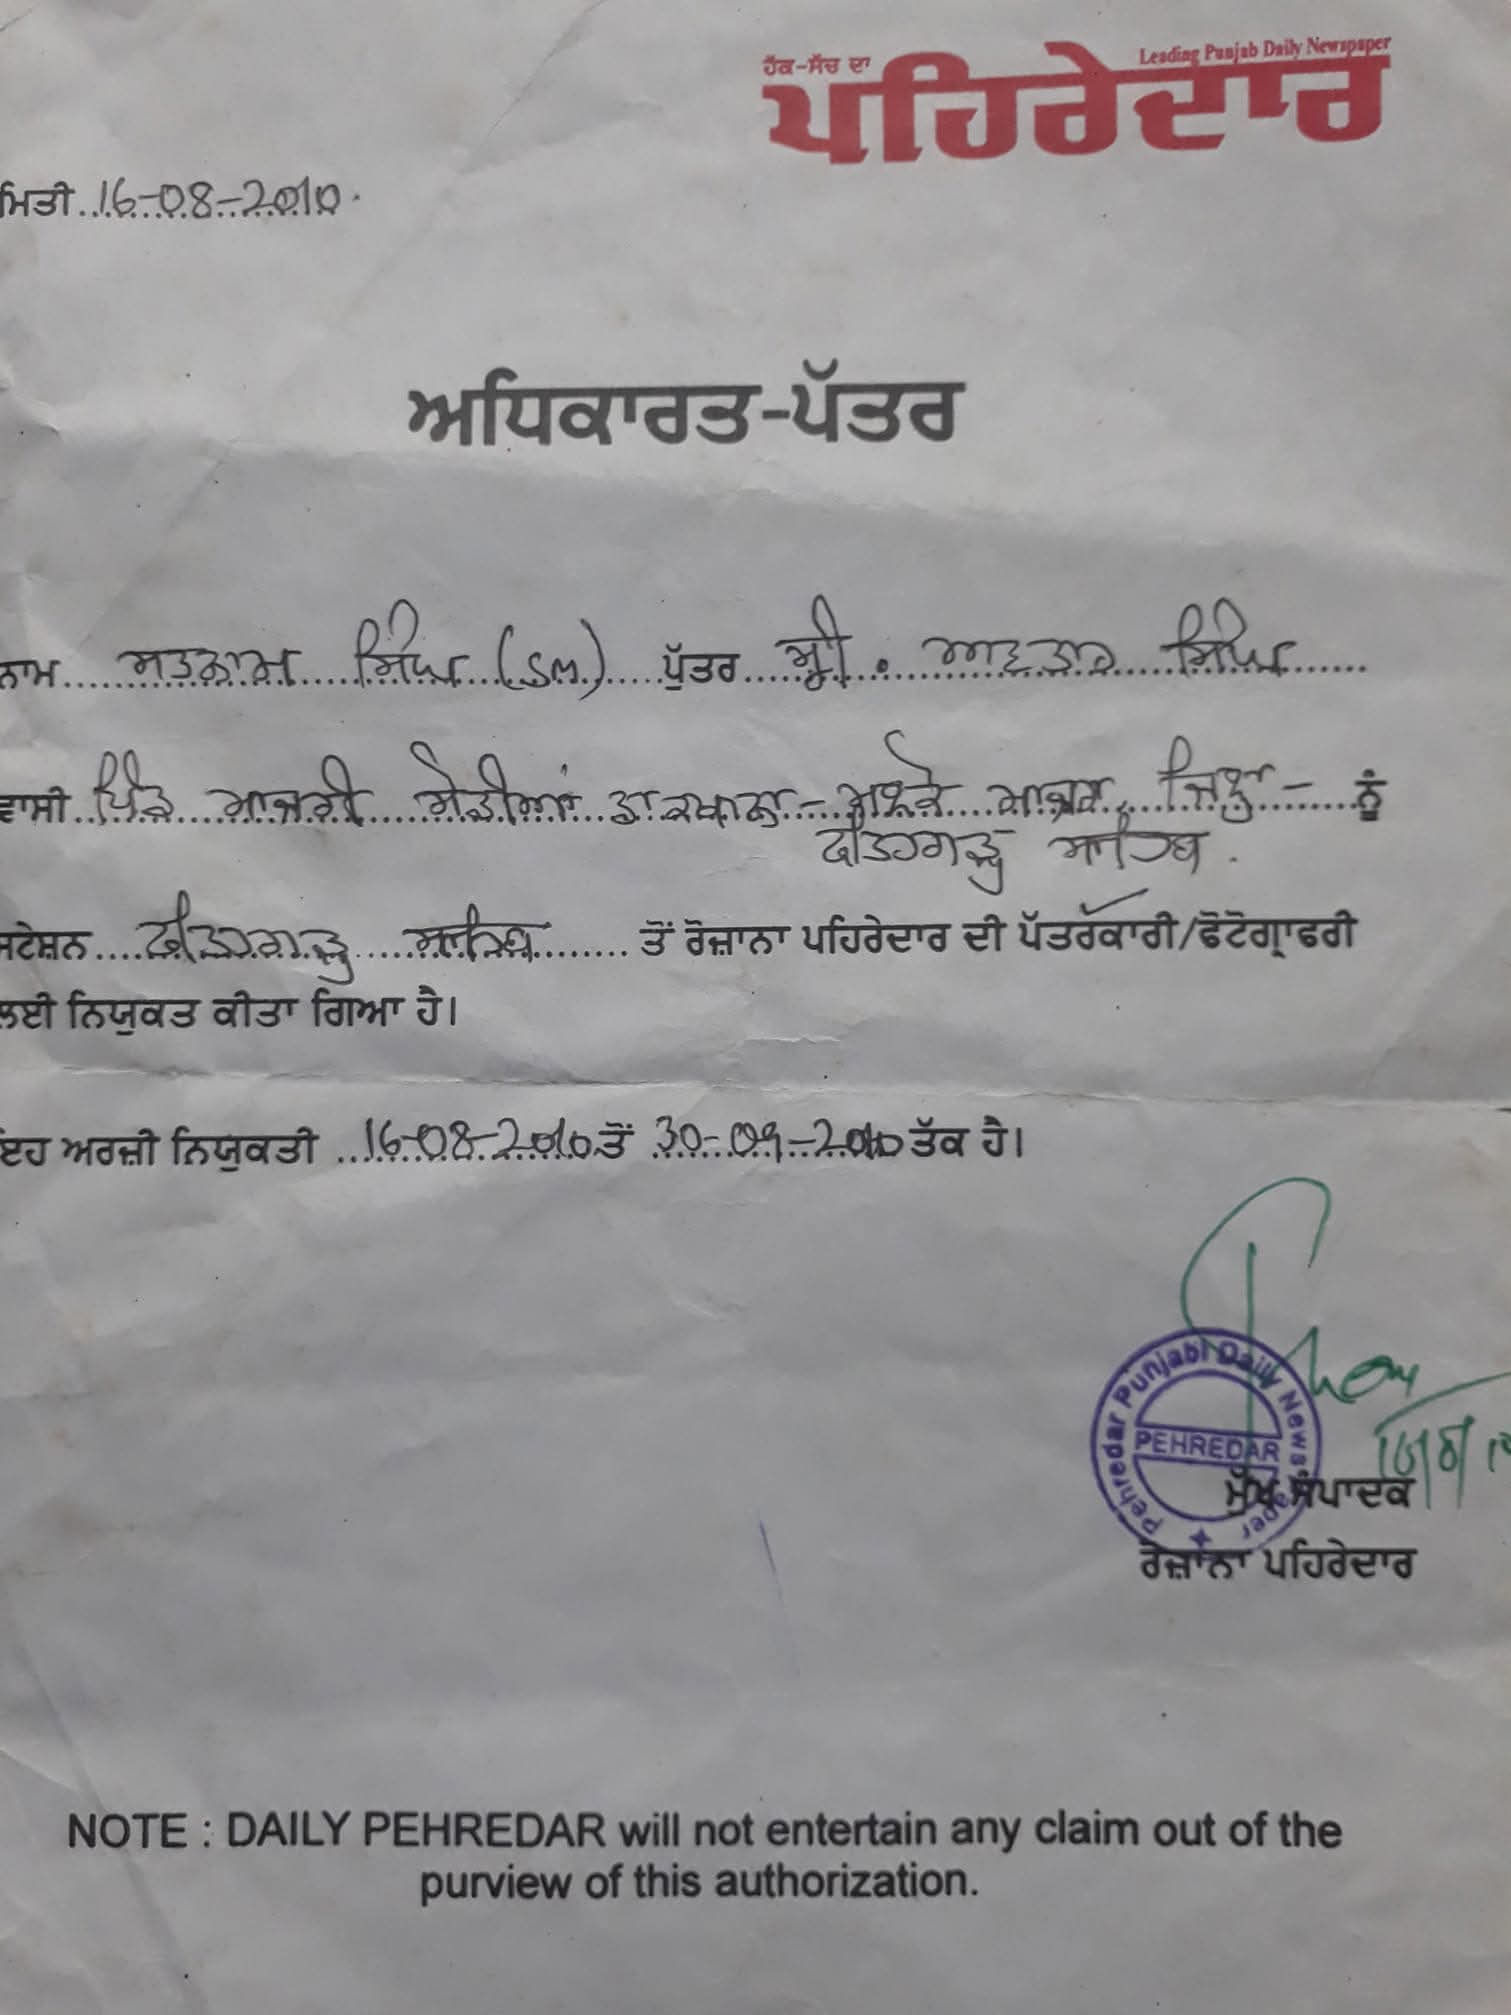 ਹੱਕ-ਸੱਚ ਦਾ
Leading Punjab Daily Newspaper
ਪਹਿਰੇਦਾਰ
ਮਿਤੀ 16-08-2010
ਅਧਿਕਾਰਤ-ਪੱਤਰ
ਨਾਮ ਸਤਨਾਮ ਸਿੰਘ (SM) ਪੁੱਤਰ ਸ੍ਰੀ. ਅਵਤਾਰ ਸਿੰਘ
ਵਾਸੀ ਪਿੰਡ ਮਾਜਰੀ ਸੋਢੀਆਂ ਡਾਕਖਾਨਾ- ਮਾਜਰਾ, ਜਿਲ੍ਹਾ- ਨੂੰ
ਫਤਿਹਗੜ੍ਹ ਸਾਹਿਬ.
ਸਟੇਸ਼ਨ ਫਤਿਹਗੜ੍ਹ ਸਾਹਿਬ ਤੋਂ ਰੋਜ਼ਾਨਾ ਪਹਿਰੇਦਾਰ ਦੀ ਪੱਤਰਕਾਰੀ/ਫੋਟੋਗ੍ਰਾਫਰੀ
ਲਈ ਨਿਯੁਕਤ ਕੀਤਾ ਗਿਆ ਹੈ।
ਇਹ ਅਰਜ਼ੀ ਨਿਯੁਕਤੀ 16-08-2010 ਤੋਂ 30-09-2010 ਤੱਕ ਹੈ।
Pehredar Punjabi Daily Newspaper
PEHREDAR
ਮੁੱਖ ਸੰਪਾਦਕ
ਰੋਜ਼ਾਨਾ ਪਹਿਰੇਦਾਰ
NOTE : DAILY PEHREDAR will not entertain any claim out of the
purview of this authorization.